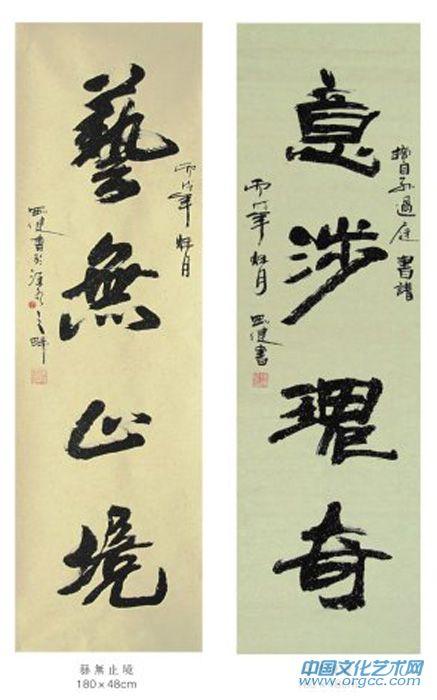 藝無止境
丙戌年秋月
意涉瑰奇
摘自孙過庭書譜
丙戌年秋月
藝無止境
180×48cm
中国文化艺术网
www.orgcc.com